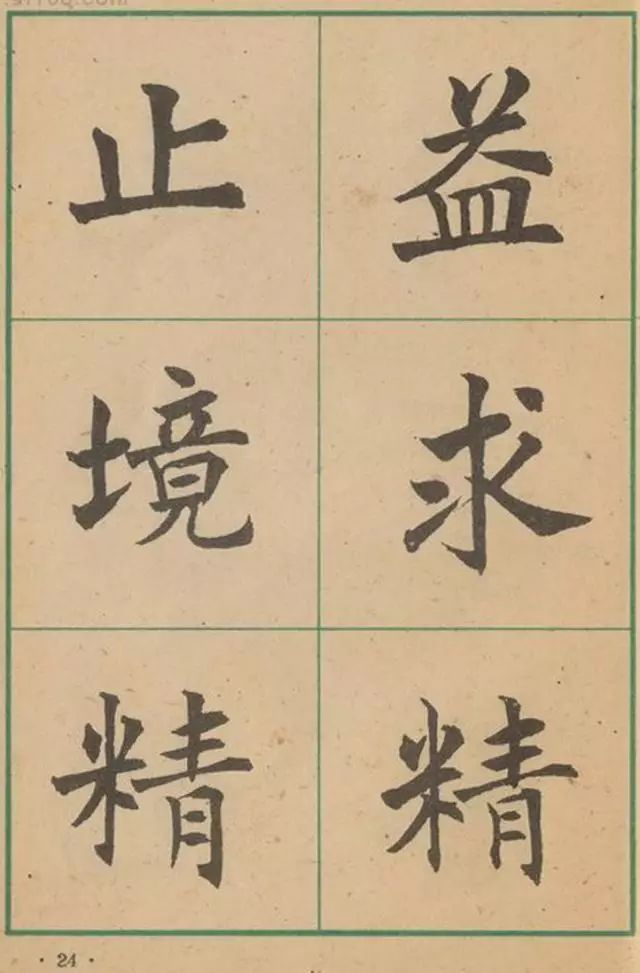 止境精
益求精
· 24 ·